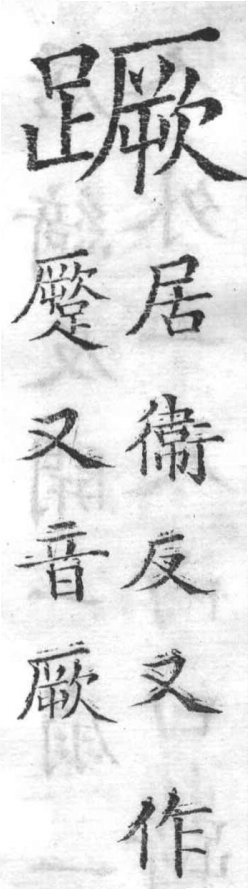 蹶
居衞反又作
蹷又音厥